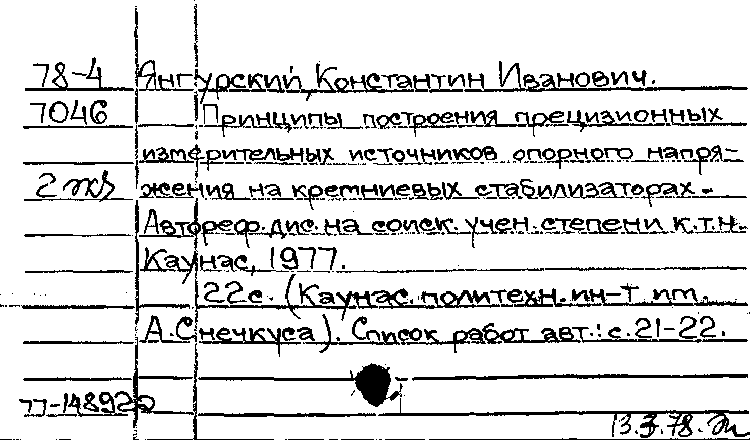 78-4 Янгурский, Константин Иванович.
7046 Принципы построения прецизионных
измерительных источников опорного напря-
2 экз жения на кремниевых стабилизаторах.-
Автореф. дис. на соиск. учен. степени к.т.н.
Каунас, 1977.
22с. (Каунас. политехн. ин-т им.
А. Снечкуса). Список работ авт.: с. 21-22.
77-14892
13.3.78.